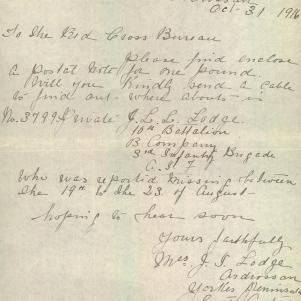 Ardrossan
Oct 31 1916
To the Red Cross Bureau
Please find enclose
a Postal Note for one pound.
Will you Kindly send a Cable
to find out where abouts is
No. 3799 Private J. L. L. Lodge.
10th Battalion
B Company
3rd Infantry Brigade
A.I.F
Who was reported missing between
the 19th to the 23 of August
hoping to hear soon
Yours faithfully
Mrs J. T. Lodge
Ardrossan
Yorkes Peninsula